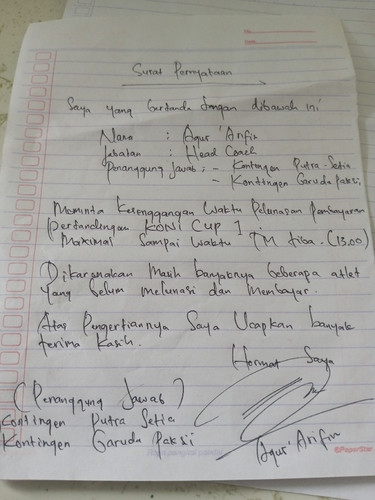 Surat Pernyataan
Saya yang bertanda tangan dibawah ini
Nama : Agus Arifin
Jabatan : Head Coach
Penanggung Jawab : - Kontingen Putra Setia
- Konttingen Garuda Paksi
Meminta Kesenggangan Waktu Pelunasan Pembayaran
Pertandingan KONI Cup 1.
Maximal Sampai Waktu TM tiba. (13.00)
Dikarenakan Masih banyaknya beberapa atlet
yang belum melunasi dan Membayar.
Atas Pengertiannya Saya Ucapkan banyak
terima kasih.
Hormat Saya
(Penanggung Jawab)
Kontingen Putra Setia
Kontingen Garuda Paksi
Agus Arifin
@PaperStar